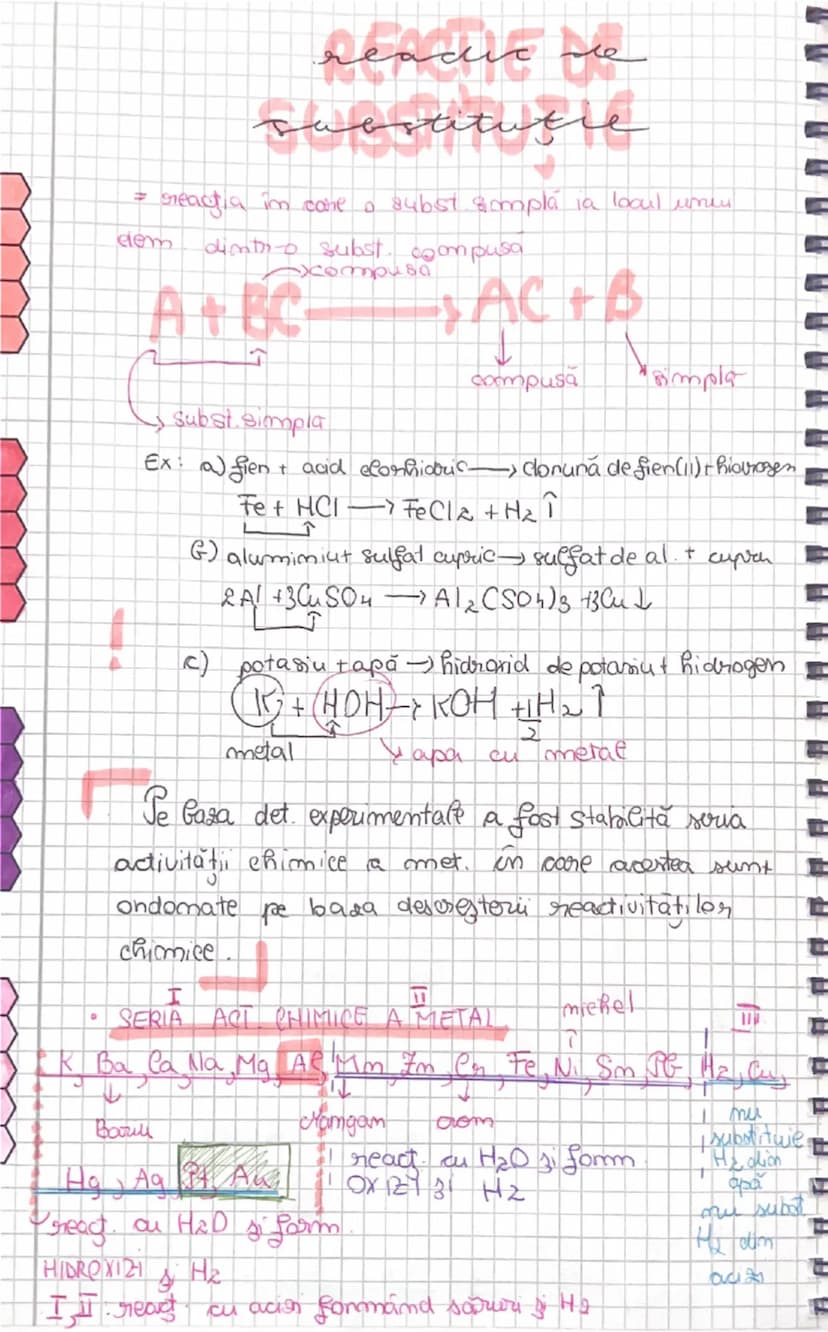 REACȚIE DE
reacție de
SUBSTITUȚIE
substituție
= reacția în care o subst. simplă ia locul unui
elem. dintr-o subst. compusă
compusă
A + BC → AC + B
compusă simplă
subst. simplă
Ex: a) fier + acid clorhidric → clorură de fier(II) + hidrogen
Fe + HCl → FeCl2 + H2 ↑
b) aluminiu + sulfat cupric → sulfat de al. + cupru
2Al + 3CuSO4 → Al2(SO4)3 + 3Cu ↓
!
c) potasiu + apă → hidroxid de potasiu + hidrogen
K + HOH → KOH + 1/2 H2 ↑
metal apa cu metal
Pe baza det. experimentale a fost stabilită seria
activității chimice a met. în care acestea sunt
ordonate pe baza descreșterii reactivităților
chimice.
I II nichel III
• SERIA ACT. CHIMICE A METAL
K, Ba, Ca, Na, Mg, Al, Mn, Zn, Cr, Fe, Ni, Sn, Pb, H2, Cu,
Bariu Mangan crom
nu
substituie
H2 din
apă
nu subst
H2 din
acizi
react. cu H2O și form
OXIZI și H2
Hg, Ag, Pt, Au
react. cu H2O și form.
HIDROXIZI și H2
I, II react. cu acizi formând săruri și H2